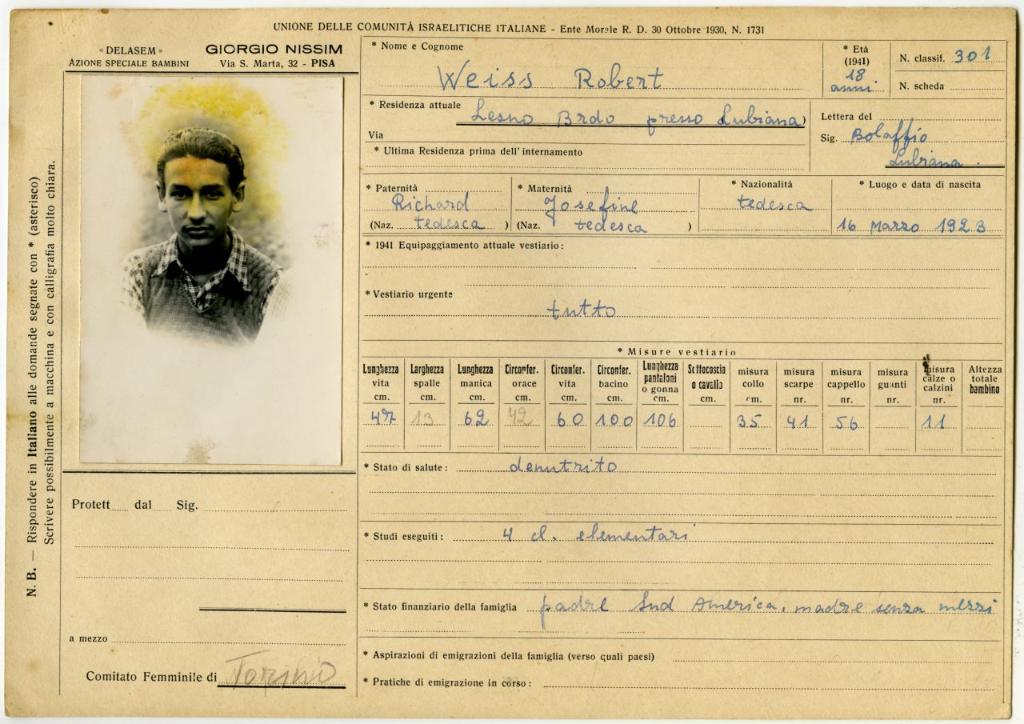 UNIONE DELLE COMUNITÀ ISRAELITICHE ITALIANE - Ente Morale R. D. 30 Ottobre 1930, N. 1731
« DELASEM »
AZIONE SPECIALE BAMBINI
GIORGIO NISSIM
Via S. Marta, 32 - PISA
N. B. — Rispondere in Italiano alle domande segnate con * (asterisco)
Scrivere possibilmente a macchina e con calligrafia molto chiara.
* Nome e Cognome
Weiss Robert
* Età
(1941)
18
anni
N. classif. 301
N. scheda
* Residenza attuale Lesno Brdo presso Lubiana
Via
* Ultima Residenza prima dell'internamento
Lettera del
Sig. Bolaffio
Lubiana.
* Paternità
Richard
(Naz. tedesca )
* Maternità
Josefine
(Naz. tedesca )
* Nazionalità
tedesca
* Luogo e data di nascita
16 Marzo 1923
* 1941 Equipaggiamento attuale vestiario:
* Vestiario urgente
tutto
* Misure vestiario
Lunghezza vita cm. 47
Larghezza spalle cm. 13
Lunghezza manica cm. 62
Circonfer. orace cm. 42
Circonfer. vita cm. 60
Circonfer. bacino cm. 100
Lunghezza pantaloni o gonna cm. 106
Sottocoscia o cavallo cm.
misura collo cm. 35
misura scarpe nr. 41
misura cappello nr. 56
misura guanti nr.
misura calze o calzini nr. 11
Altezza totale bambino
* Stato di salute: denutrito
* Studi eseguiti: 4 cl. elementari
* Stato finanziario della famiglia padre Sud America, madre senza mezzi
* Aspirazioni di emigrazioni della famiglia (verso quali paesi)
* Pratiche di emigrazione in corso:
Protett dal Sig.
a mezzo
Comitato Femminile di Torino